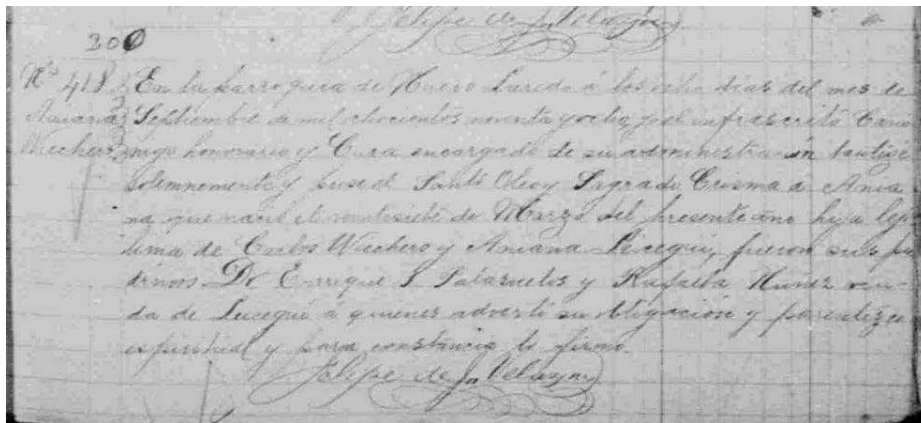 Felipe de J. Velazquez
200
No. 418 En la parroquia de Nuevo Laredo á los ocho dias del mes de
Aniana Septiembre de mil ochocientos noventa y ocho, yo el infrascrito Canó
Wiechers nigo honorario y Cura encargado de su administracion bautizé
solemnemente y puse el Santo Oleo y Sagrado Crisma a Ania
na que nació el veintisiete de Marzo del presente año hija legi
tima de Carlos Wiechers y Aniana fueron sus pa
drinos Dr Enrique S. y Rafaela Nuñez viu-
da de á quienes advertí su obligación y parentezco
espiritual y para constancia lo firmo.
Felipe de J. Velazquez